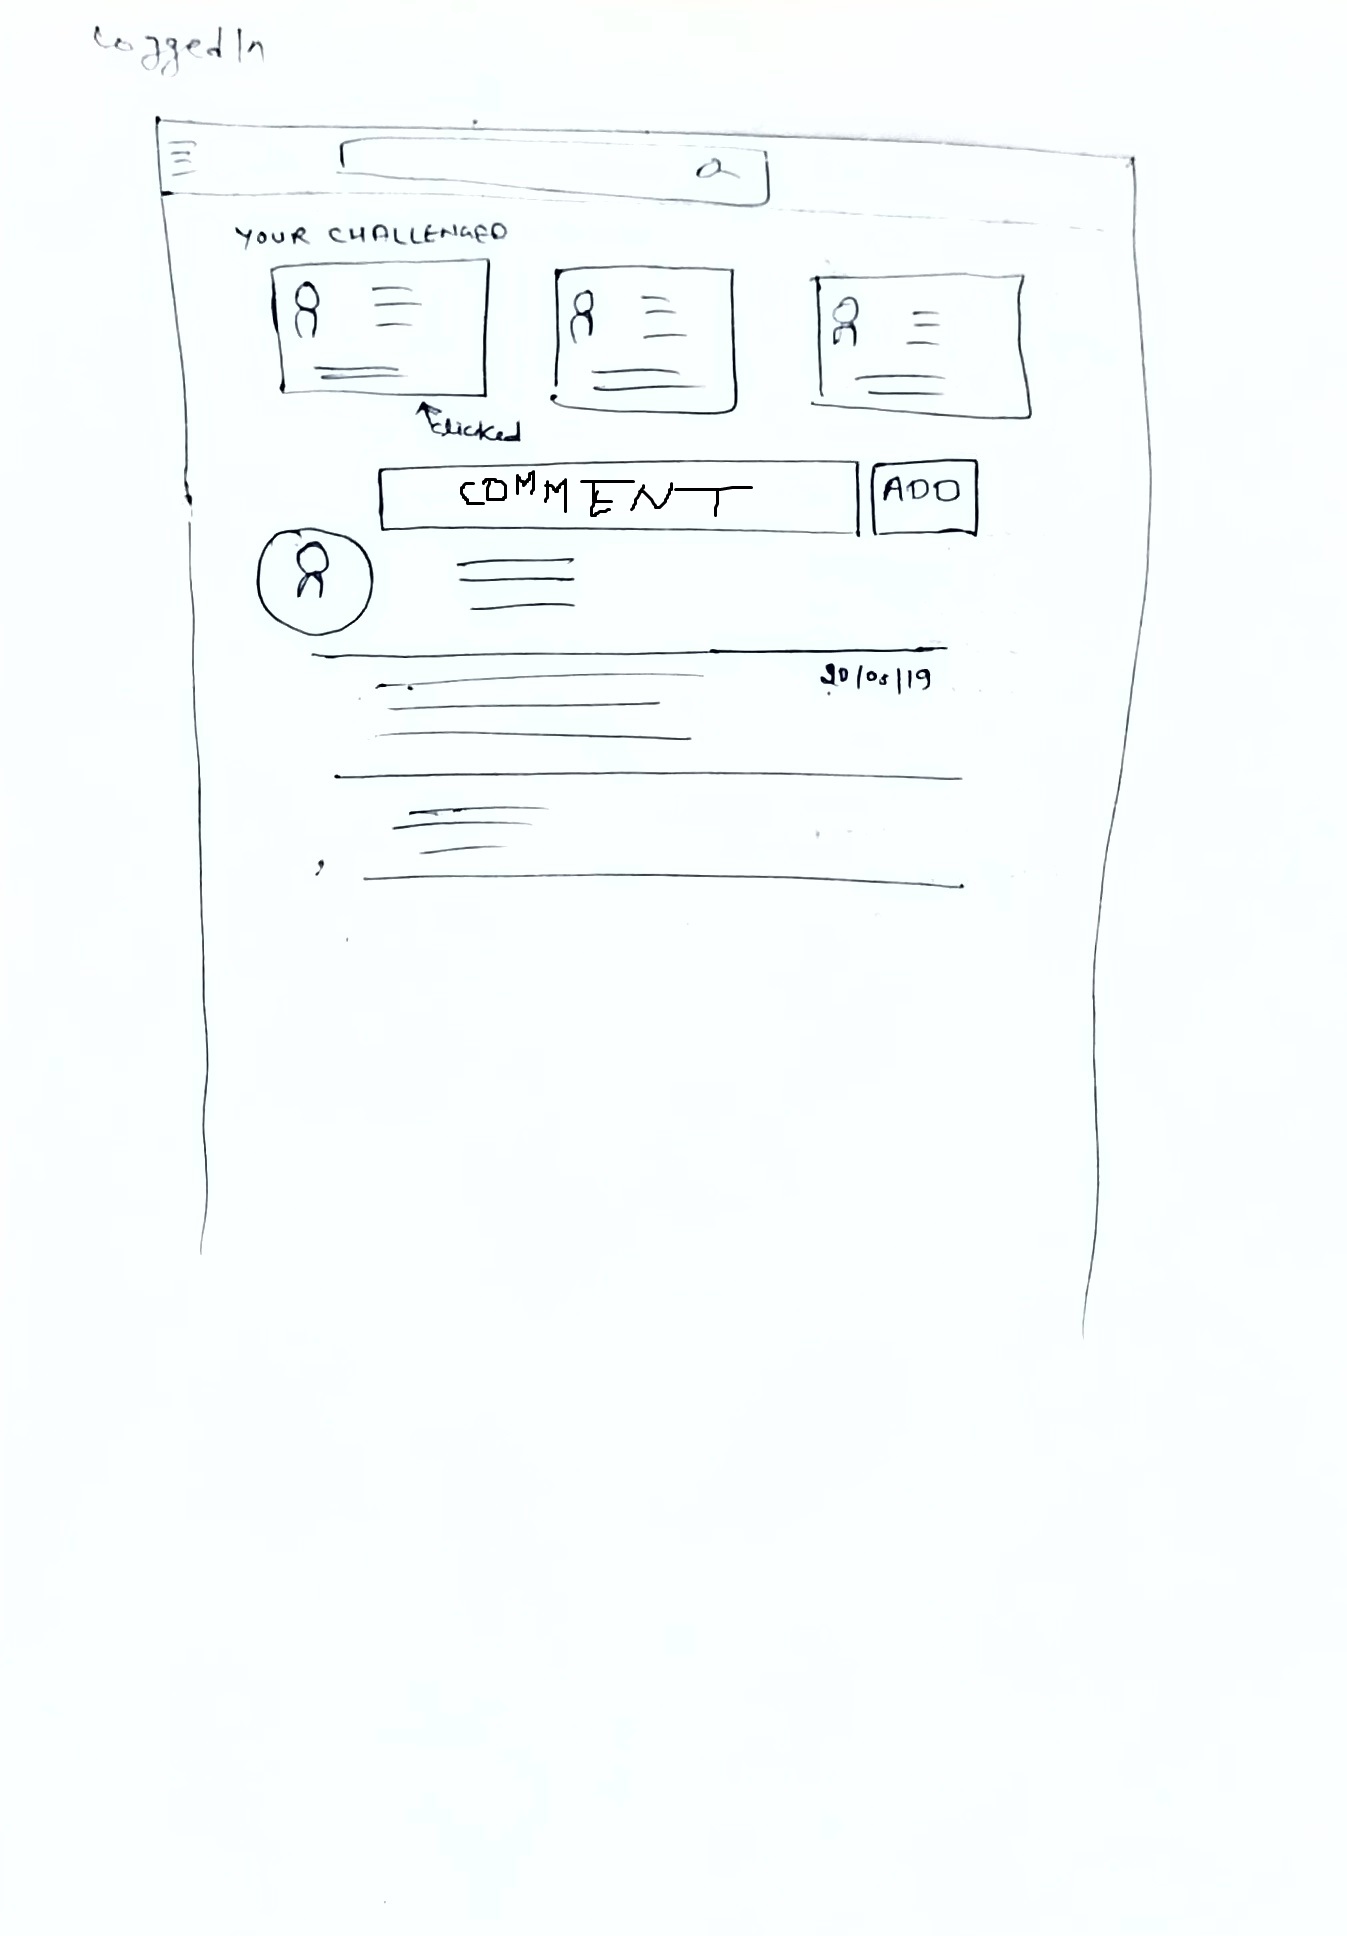 LoggedIn
YOUR CHALLENGED
clicked
COMMENT
ADD
20/05/19